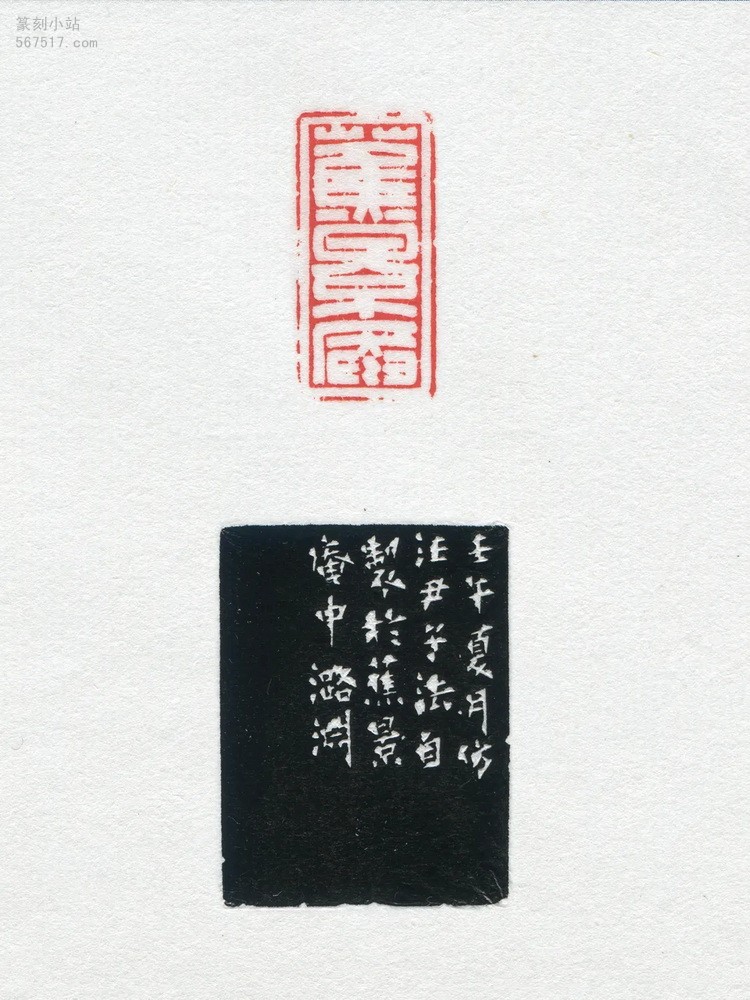 篆刻小站
567517.com
蕉景庵
壬午夏月仿
汪尹子法自
製於蕉景
庵中潞淵